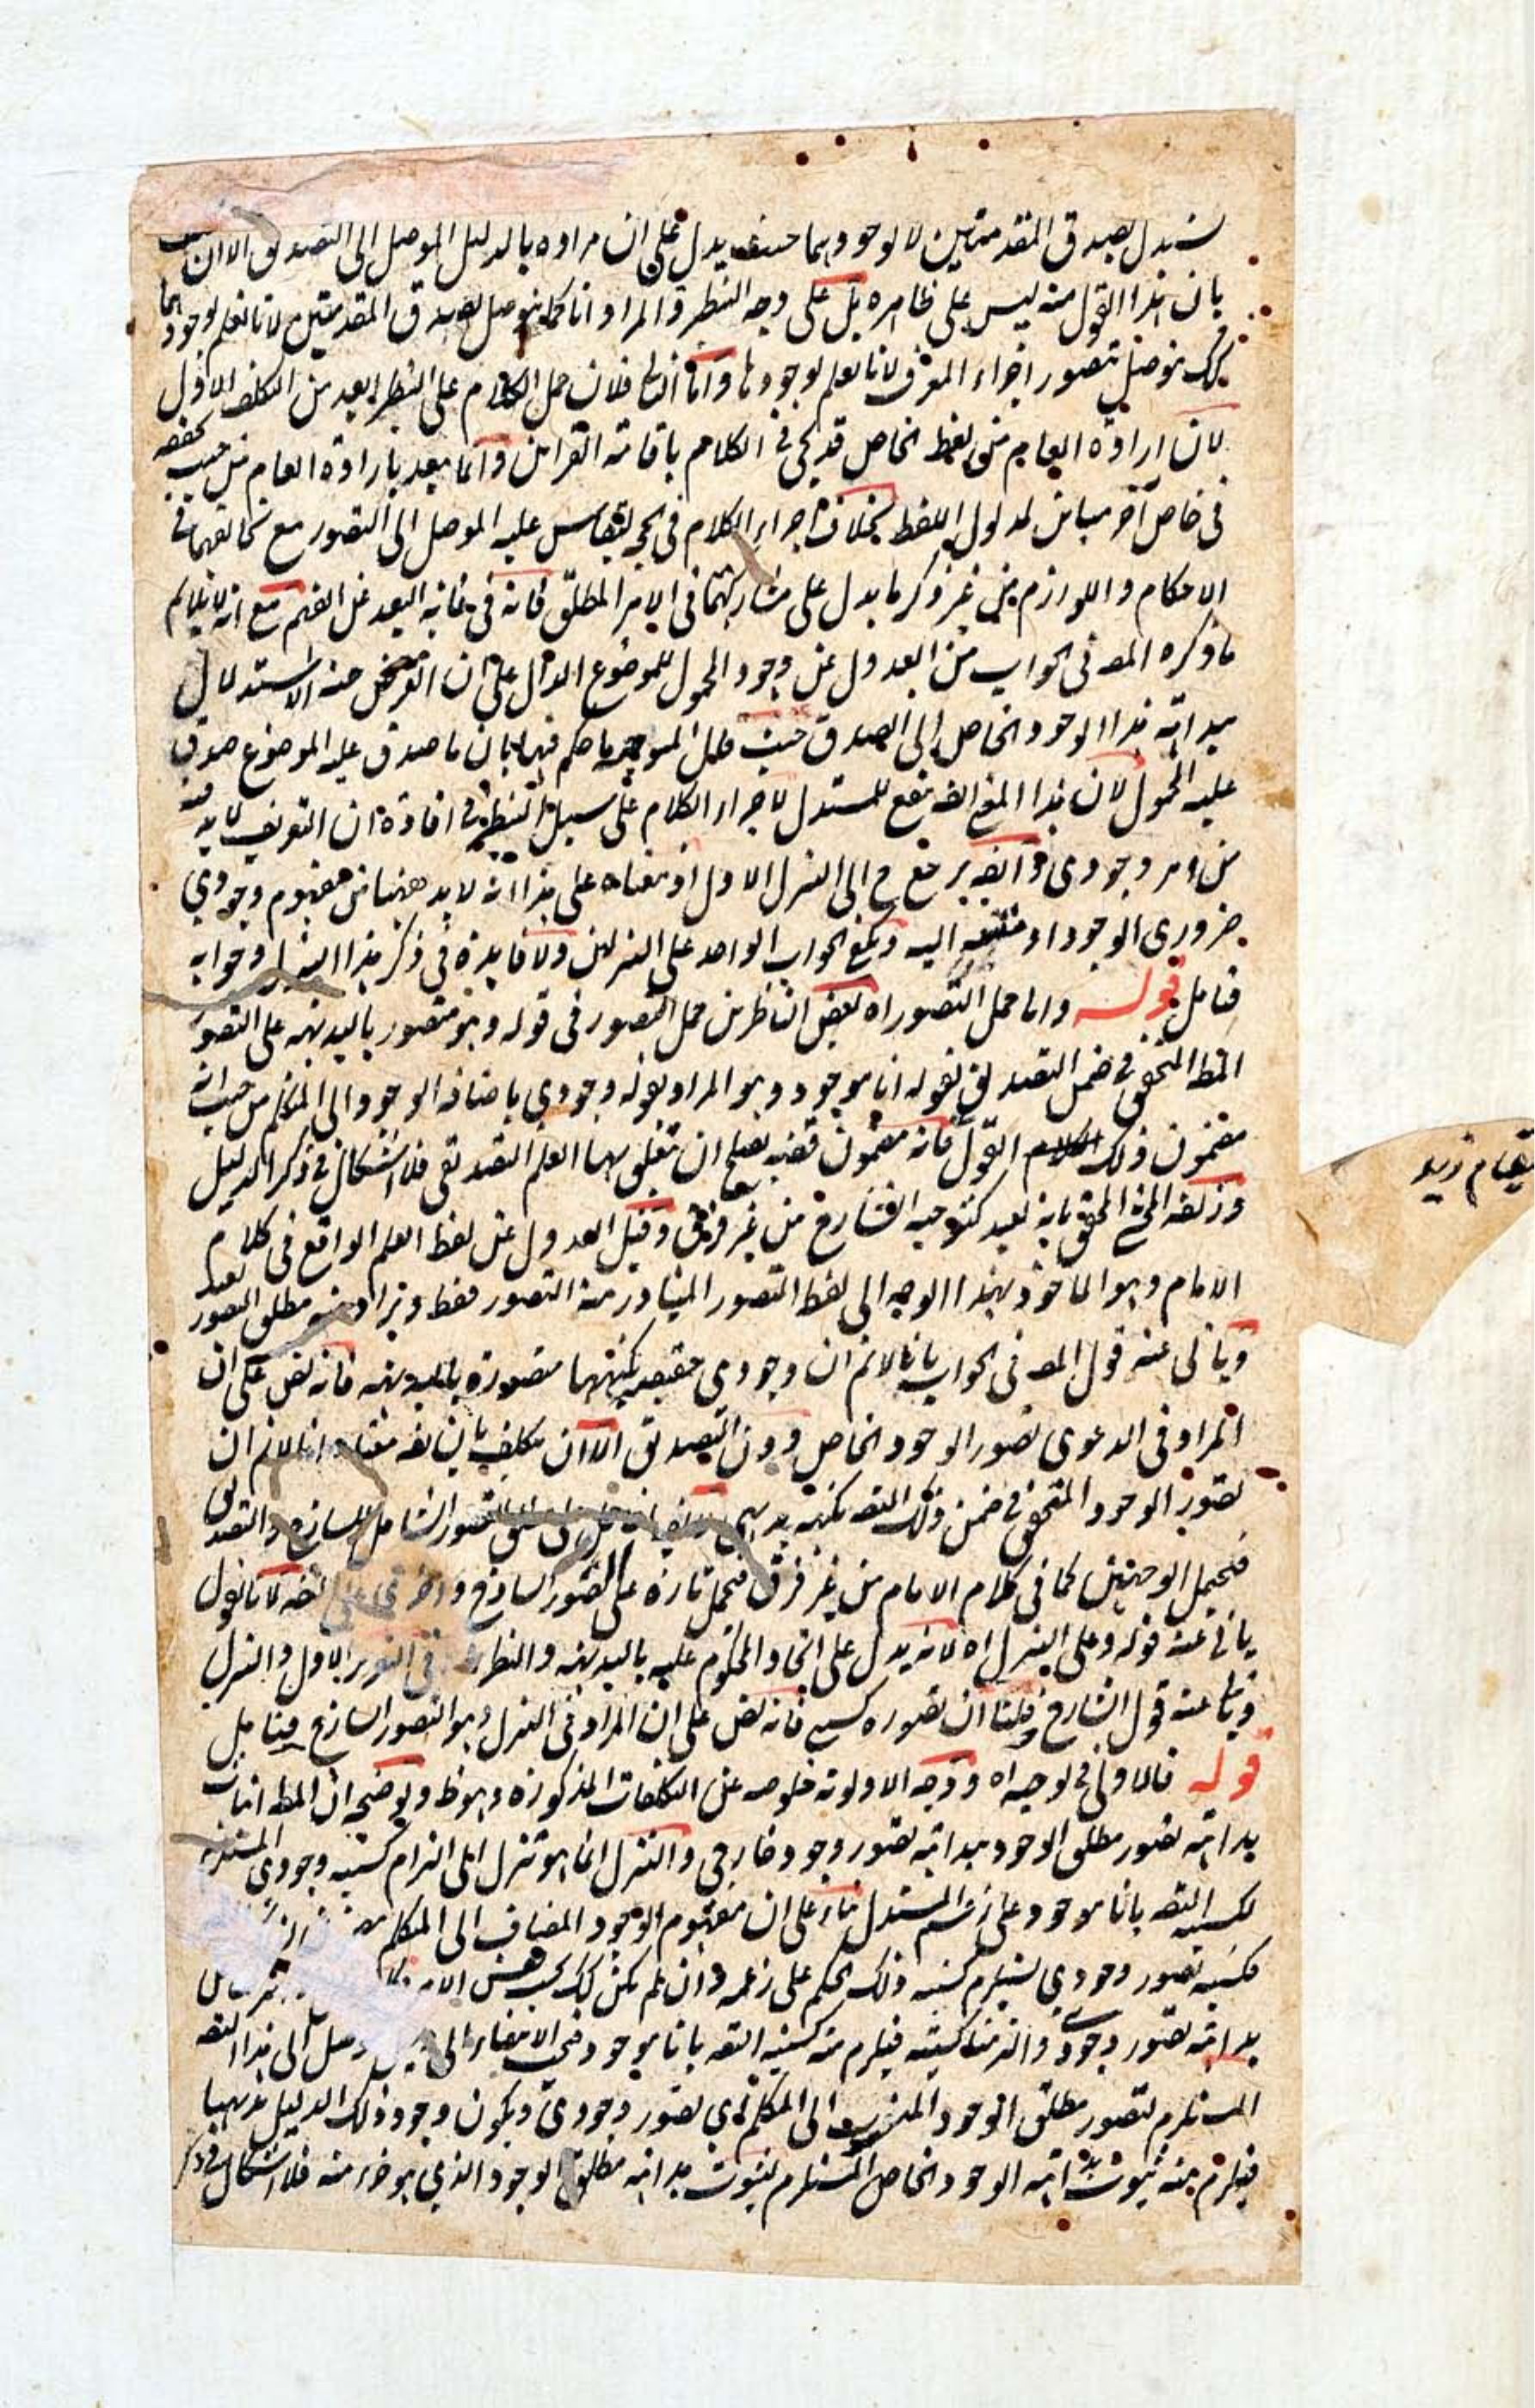 نستدل بصدق المقدمتين لا لوجودهما حيث يدل على ان مراده بالدليل الموصل الى التصديق الا ان
بان هذا القول منه ليس على ظاهره بل على وجه النظير والمراد انا كما نتوصل بصدق المقدمتين لا بانا نعلم لوجودهما
كك نتوصل بتصور اجزاء المعرف لا بانا نعلم لوجودها واما فلان حمل الكلام على النظير ابعد من التكلف الاول
لان ارادة العام من لفظ الخاص قد يجئ في الكلام باقامة القرائن وانما يبعد بارادة العام من حيث تحققه
في خاص آخر مباين لمدلول اللفظ بخلاف اجراء الكلام في الحجة ليقاس عليه الموصل الى التصور مع تخالفهما في
الاحكام واللوازم من غير ذكر ما يدل على مشاركتهما في الامر المطلق فانه في غاية البعد عن الفهم مع انه لا يلائم
ما ذكره المصـ في الجواب من العدول عن وجود المحمول للموضوع الدال على ان الغرض منه الاستدلال
ببداهة هذا الوجود الخاص الى الصدق حيث قال الموجبة ما حكم فيها بان ما صدق عليه الموضوع صدق
عليه المحمول لان هذا المنع انفع للمستدل لاجراء الكلام على سبيل التنظير في افادة ان التعريف لا بد فيه
من امر وجودي وايضا يرجع ح الى التنزل الاول اذ معناه على هذا انه لا بد ههنا من مفهوم وجودي
ضروري الوجود او منتهية اليه ويكفي الجواب الواحد على التنزلين ولا فايدة في ذكر هذا التنزل وجوابه
فتامل قوله وانما حمل التصور اه بعض الناظرين حمل التصور في قوله وهو متصور بالبديهة على التصور
المط المتحقق في ضمن التصديق بقوله انا موجود وهو المراد بقوله وجودي باضافة الوجود الى المتكلم من حيث انه
مضمون ذلك القول فانه مضمون قضية يصلح ان يتعلق بها العلم التصديقي فلا اشكال في ذكر الدليل
وزيفه المحشي المحقق بانه بعيد كتوجيه الشارح من غير فرق وقيل العدول عن لفظ العلم الواقع في كلام
الامام وهو الماخوذ بهذا الوجه الى لفظ التصور المتبادر منه التصور فقط ويراد منه مطلق التصور بعيد
ويأبى عنه قول المصـ في الجواب بانا لا نم ان وجودي حقيقته بكنهها متصورة بالبديهة فانه نص على ان
المراد في الدعوى تصور الوجود الخاص دون التصديق الا ان يتكلف بان يقـ معناه انا لا نم ان
تصور الوجود المتحقق في ضمن ذلك التصـ بكنهه بديهي التصور الشامل للساذج والتصديق
فيحتمل الوجهين كما في كلام الامام من غير فرق فيحمل تارة على التصور الساذج واخرى على التصـ لانا نقول
يأبى عنه قوله وعلى التنزل اه لانه يدل على اتحاد المحكوم عليه بالبديهة والنظرية في التقرير الاول والتنزل
ويأبى عنه قول الشارح وقلنا ان تصوره كسبي فانه نص على ان المراد في التنزل هو التصور الساذج فتامل
قوله فالاولى في توجيهه اه ووجه الاولوية خلوصه عن التكلفات المذكورة وهو ظ وتوضيحه ان المط اثبات
بداهة تصور مطلق الوجود ببداهة تصور وجود خارجي والتنزل انما هو تنزل الى التزام كسبية وجودي المستلزمة
لكسبية التصـ بانا موجود على زعم المستدل بناء على ان مفهوم الوجود المضاف الى المتكلم
فكسبية تصور وجودي يستلزم كسبية ذلك الحكم على زعمه وان لم يكن كك بحسب نفس الامر
بداهة تصور وجودي والتزمنا كسبيته فيلزم منه كسبية التصـ بانا موجود فيجب الانتهاء الى دليل موصل الى هذا التصـ
المستلزم لتصور مطلق الوجود المنسوب الى المتكلم اي تصور وجودي ويكون وجود ذلك الدليل بديهيا
فيلزم منه ثبوت بداهة الوجود الخاص المستلزم لثبوت بداهة مطلق الوجود الذي هو جزء منه فلا اشكال في ذكر